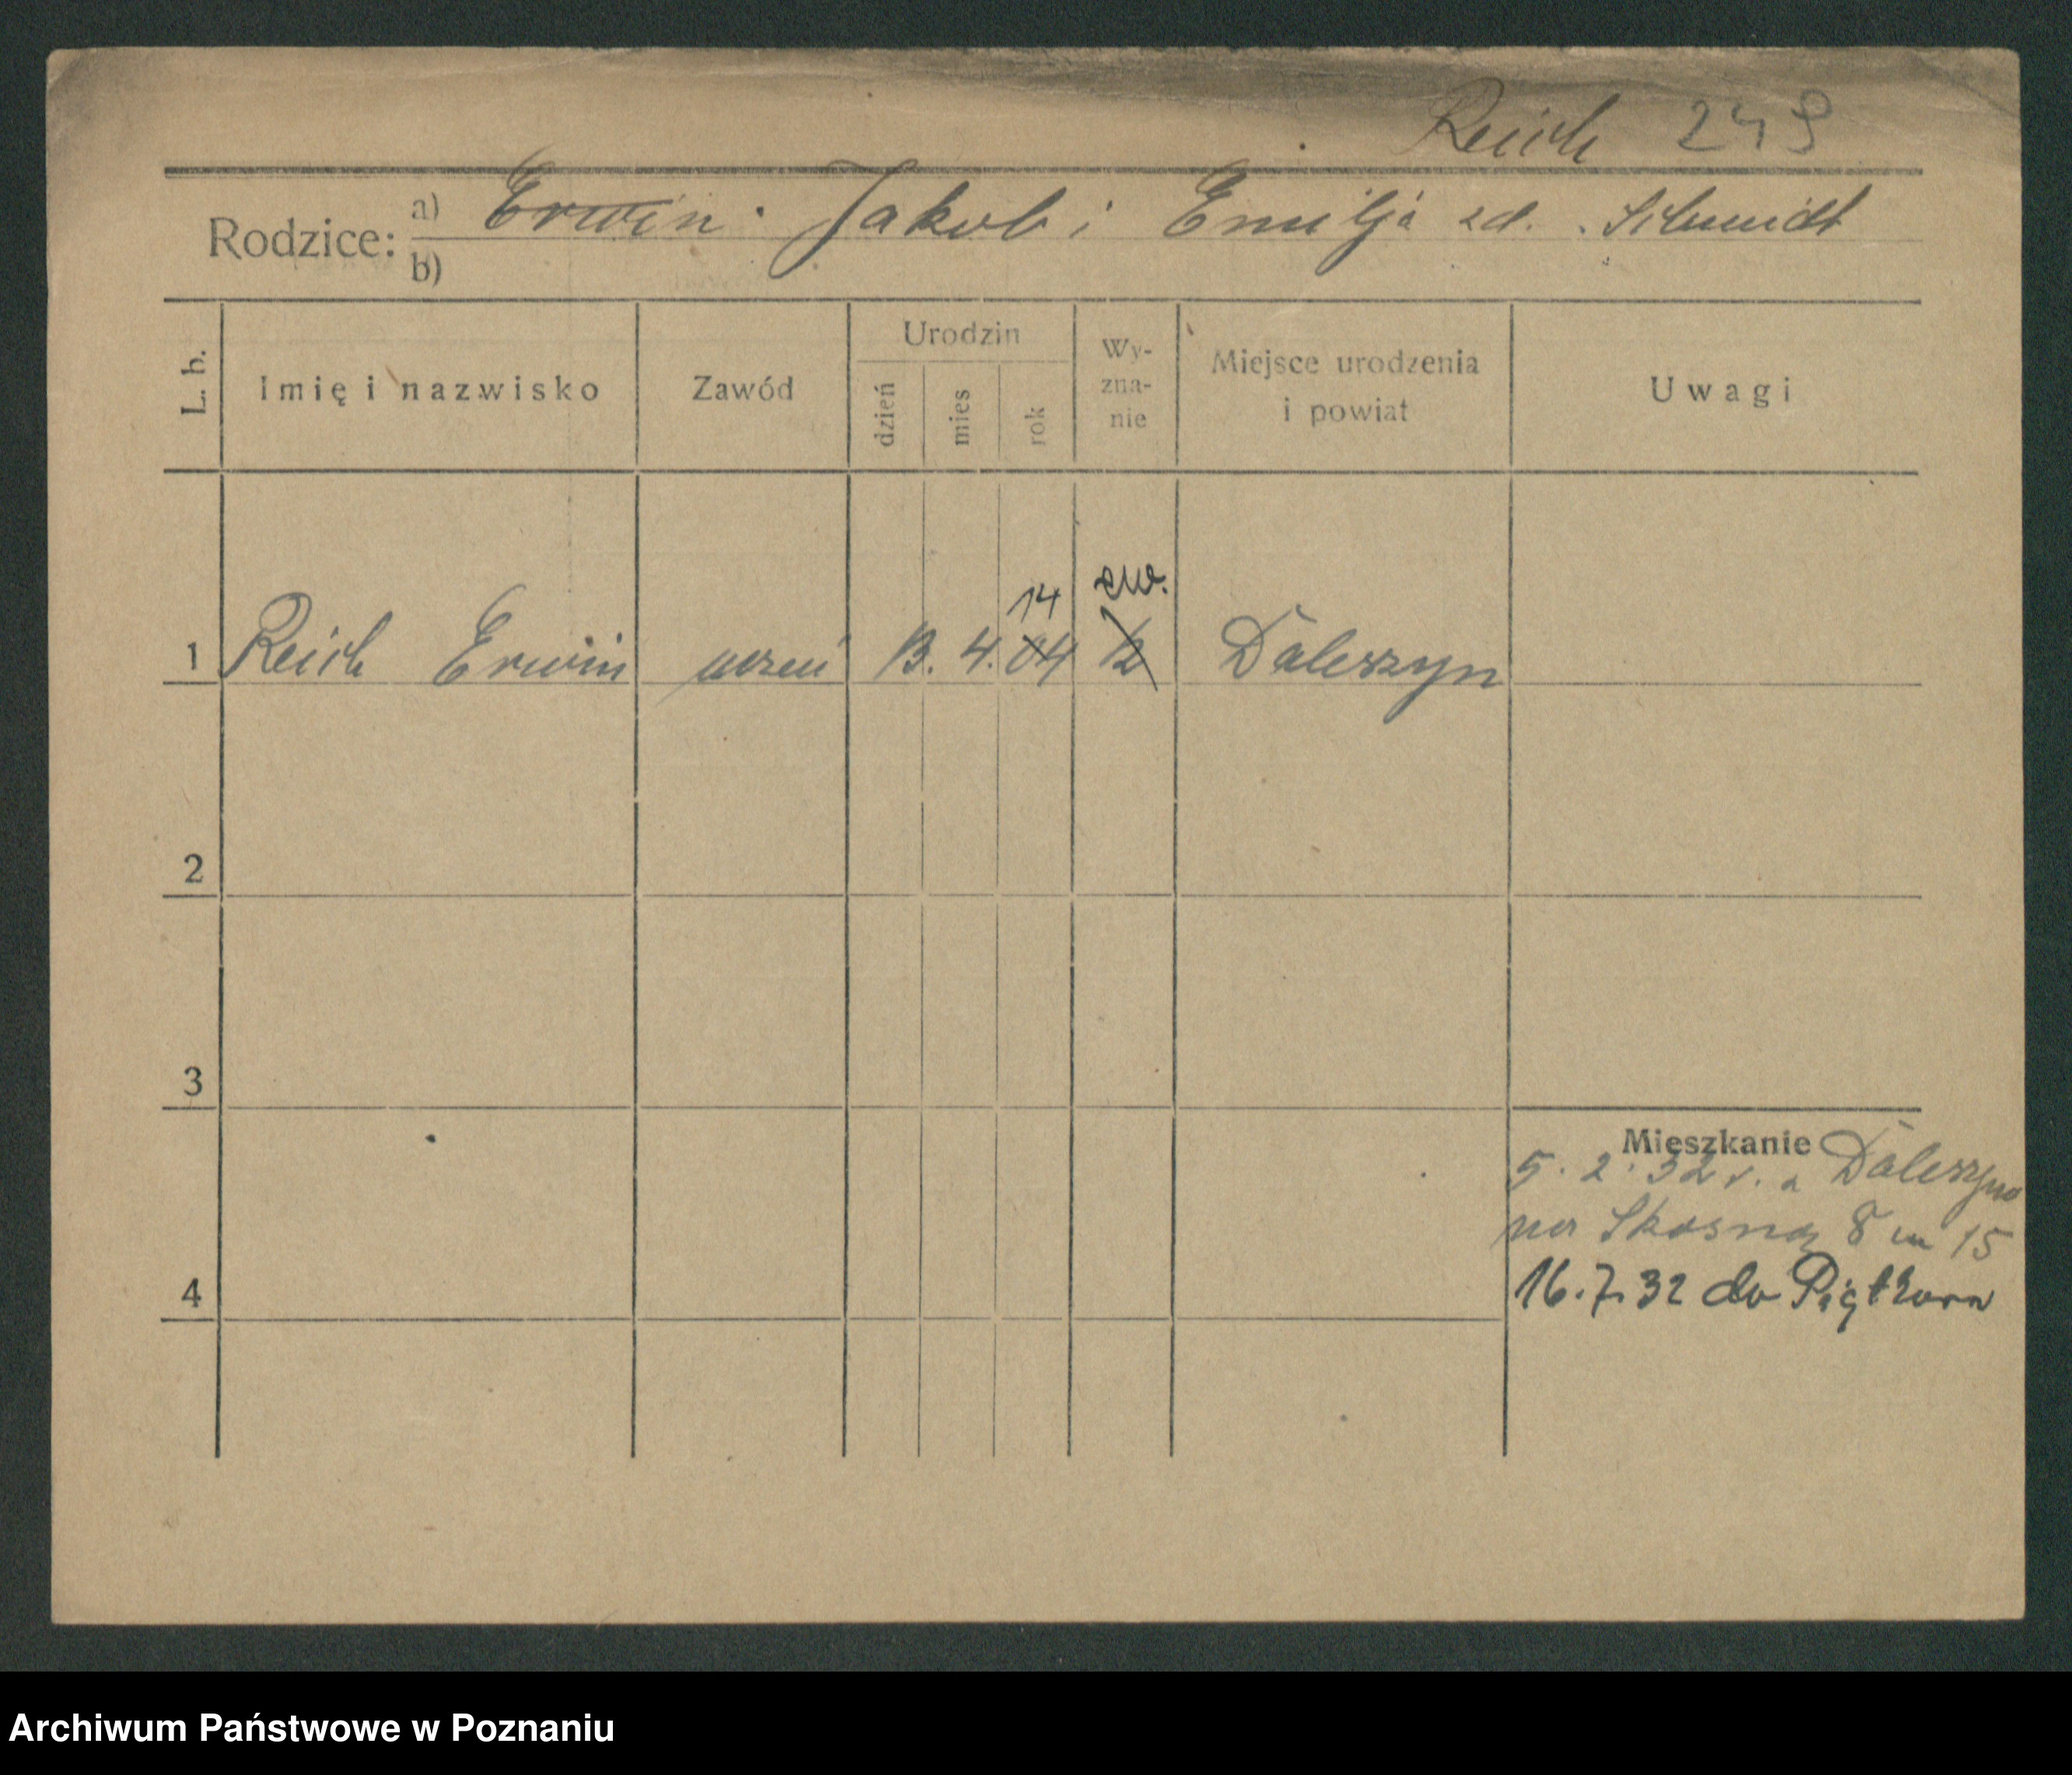 Reich 249
Rodzice: a) Erwin Jakob i Emilja zd. Schmidt
b)
L. b. Imię i nazwisko Zawód Urodzin dzień mies rok Wy-zna-nie Miejsce urodzenia i powiat Uwagi
14 ew.
1 Reich Erwin uczeń 13. 4. 04 Daleszyn
2
3
Mieszkanie
5. 2. 32 r. z Daleszyna
na Skośną 8 m 15
4
16.7.32 do Piątkowa
Archiwum Państwowe w Poznaniu